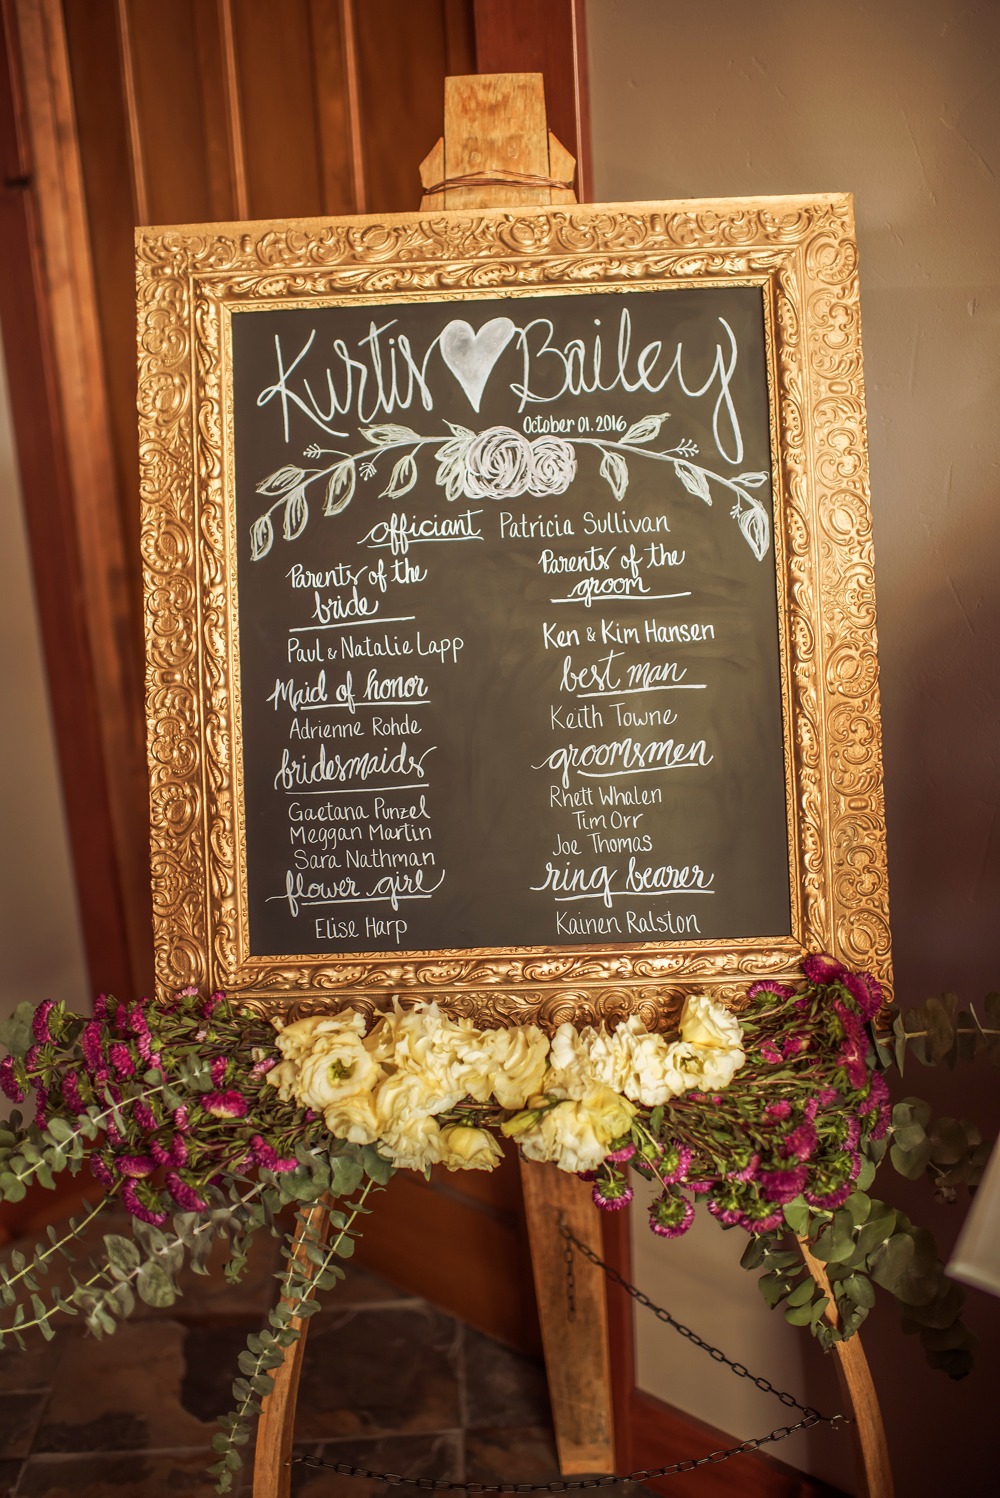 Kurtis Bailey
October 01. 2016
officiant Patricia Sullivan
Parents of the
bride
Paul & Natalie Lapp
Maid of honor
Adrienne Rohde
bridesmaids
Gaetana Punzel
Meggan Martin
Sara Nathman
flower girl
Elise Harp
Parents of the
groom
Ken & Kim Hansen
best man
Keith Towne
groomsmen
Rhett Whalen
Tim Orr
Joe Thomas
ring bearer
Kainen Ralston